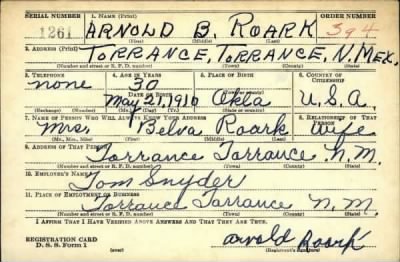 SERIAL NUMBER 1. NAME (Print) ORDER NUMBER
1261 ARNOLD B ROARK 394
2. ADDRESS (Print)
TORRANCE, TORRANCE, N. MEX.
(Number and street or R. F. D. number) (Town) (County) (State)
3. TELEPHONE 4. AGE IN YEARS 5. PLACE OF BIRTH 6. COUNTRY OF CITIZENSHIP
none 30
DATE OF BIRTH
May 27, 1910 Okla U.S.A.
(Exchange) (Number) (Mo.) (Day) (Yr.) (State or country)
7. NAME OF PERSON WHO WILL ALWAYS KNOW YOUR ADDRESS 8. RELATIONSHIP OF THAT PERSON
Mrs. Belva Roark Wife
(Mr., Mrs., Miss) (First) (Middle) (Last)
9. ADDRESS OF THAT PERSON
Torrance Torrance N.M.
(Number and street or R. F. D. number) (Town) (County) (State)
10. EMPLOYER'S NAME
Tom Snyder
11. PLACE OF EMPLOYMENT OR BUSINESS
Torrance Torrance N.M.
(Number and street or R. F. D. number) (Town) (County) (State)
I AFFIRM THAT I HAVE VERIFIED ABOVE ANSWERS AND THAT THEY ARE TRUE.
REGISTRATION CARD
D. S. S. Form 1 (over) Arnold Roark
(Registrant's signature)